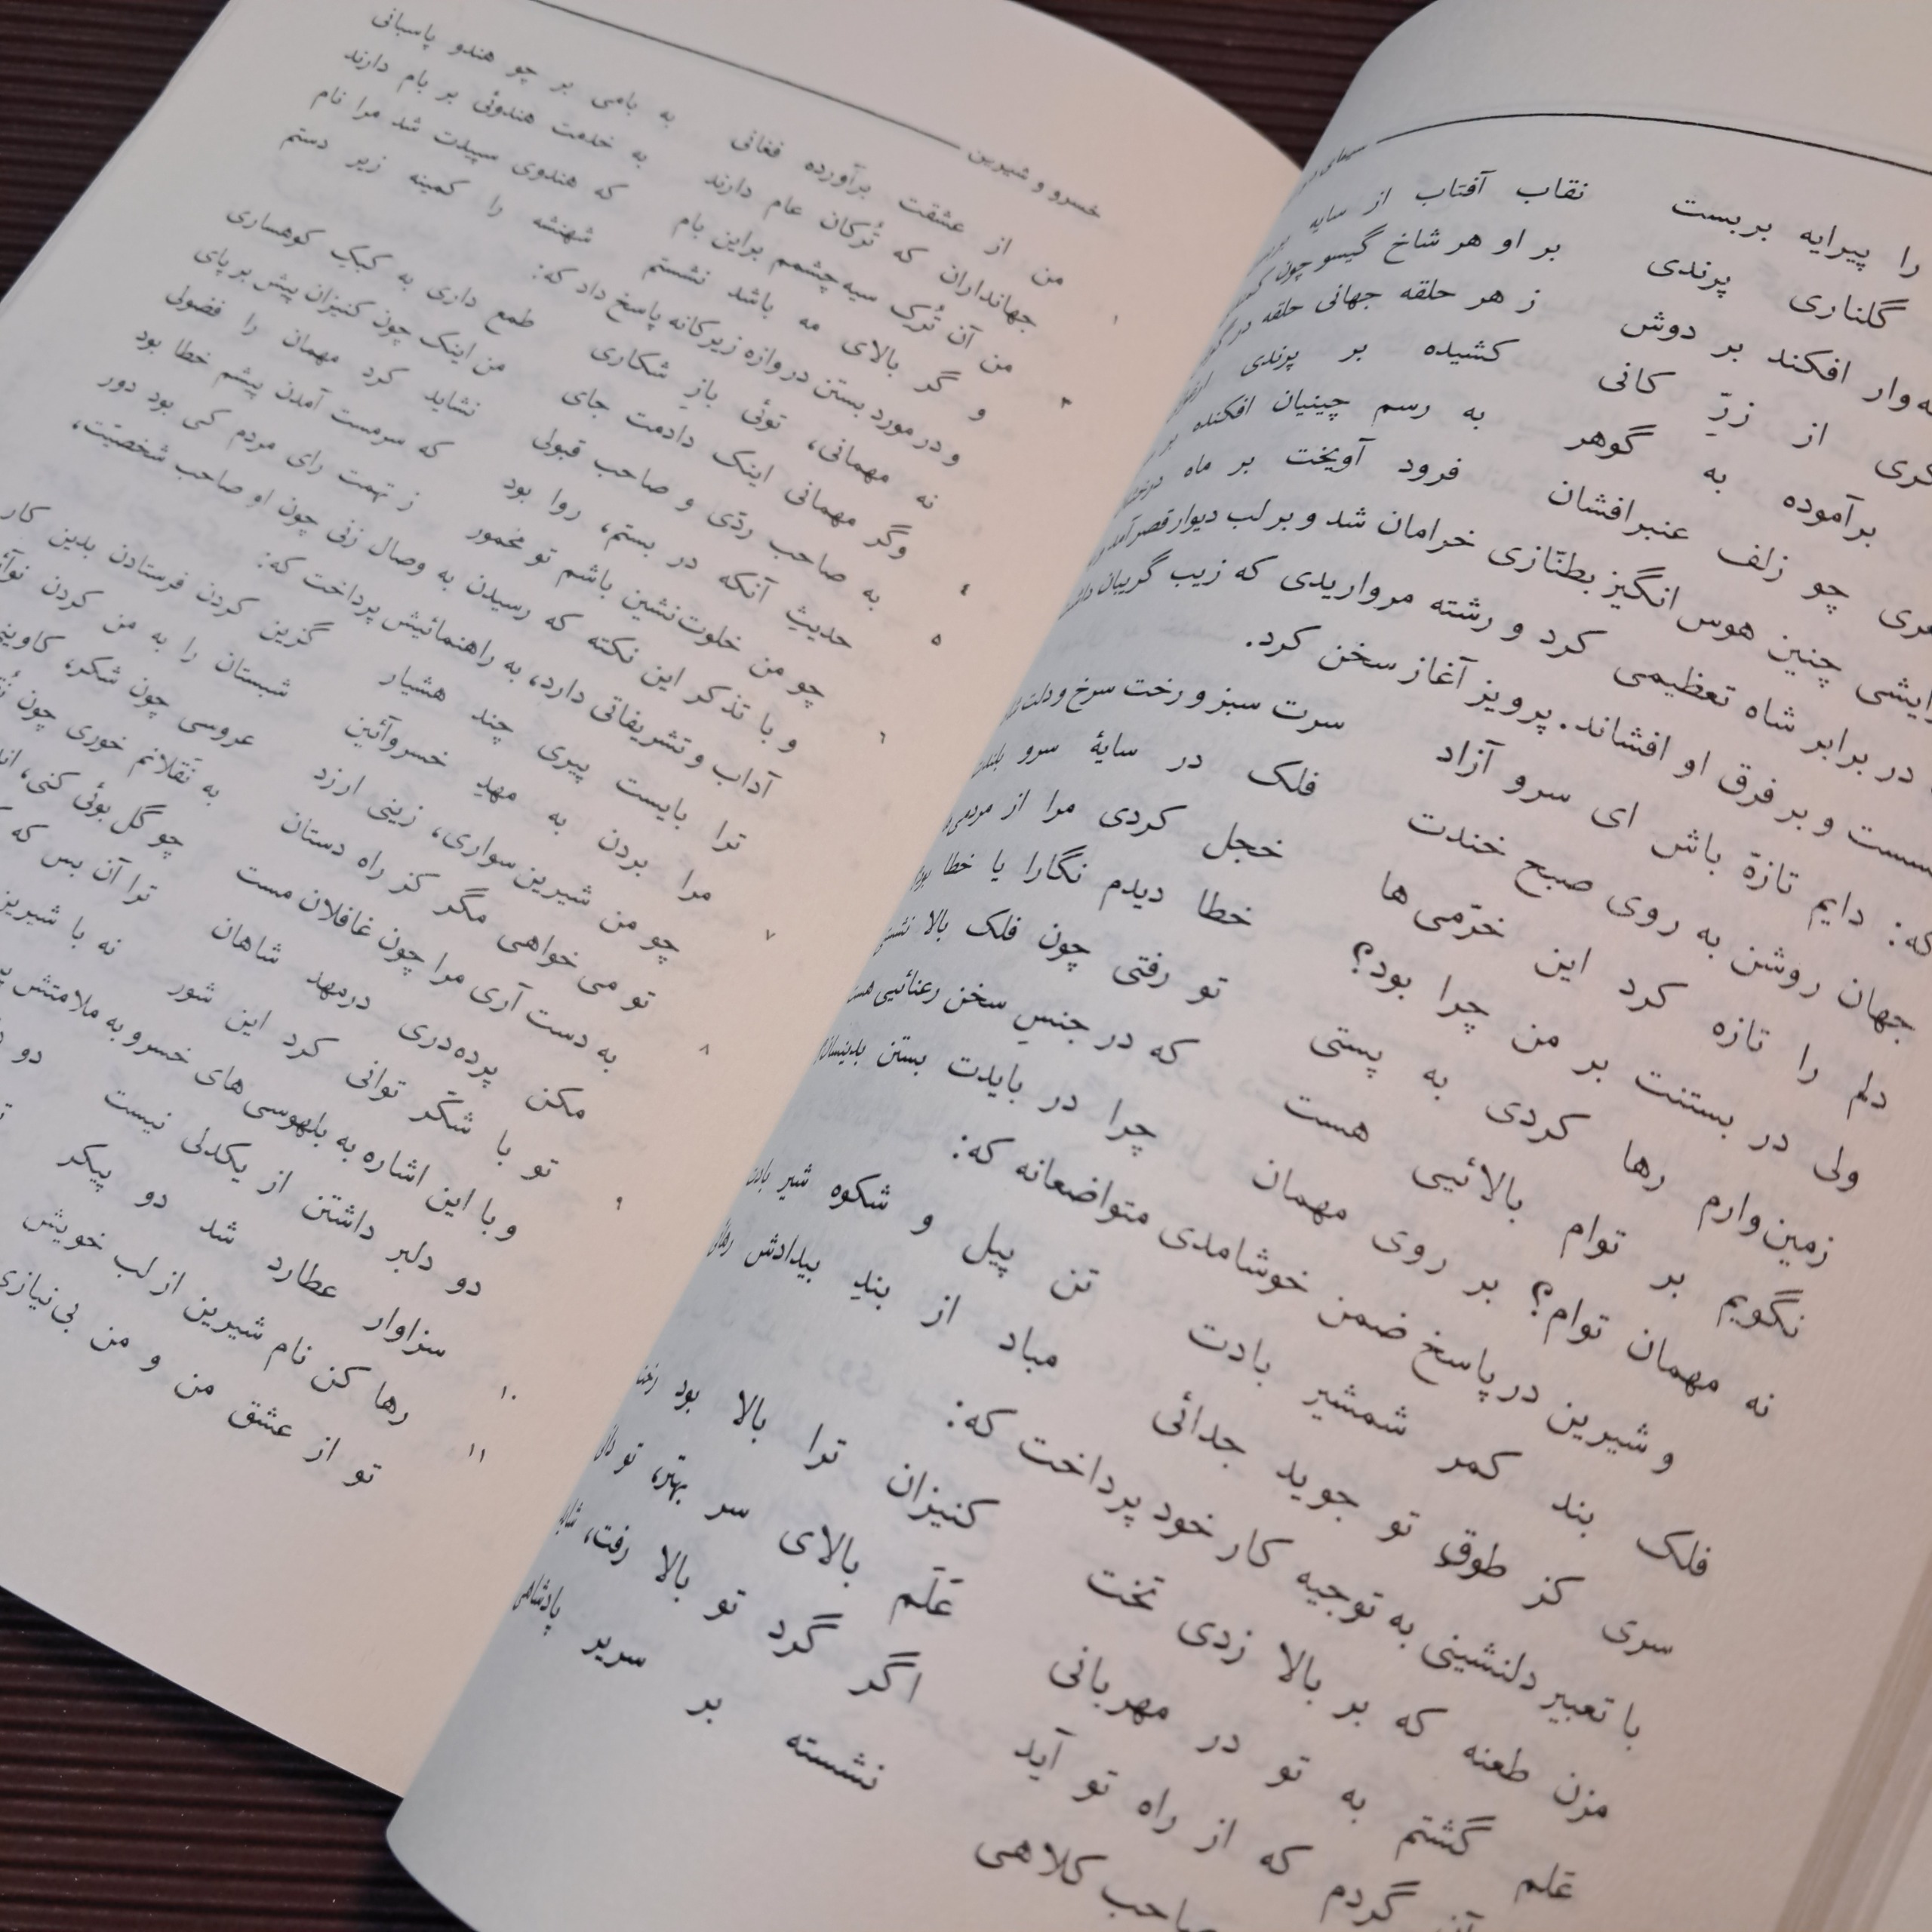 را پیرایه بربست نقاب آفتاب از سایه
گلناری پرندی بر او هر شاخ گیسو چون
افکند بر دوش ز هر حلقه جهانی حلقه در
از زرِّ کانی کشیده بر پرندی
برآموده به گوهر به رسم چینیان افکنده بر
چو زلف عنبرافشان فرود آویخت بر ماه
چنین هوس انگیز بطنّازی خرامان شد و بر لب دیوار قصر آمد
در برابر شاه تعظیمی کرد و رشته مرواریدی که زیب گریبان
و بر فرق او افشاند. پرویز آغاز سخن کرد.
که: دایم تازه باش ای سرو آزاد سرت سبز و رخت سرخ و دلت
جهان روشن به روی صبح خندت فلک در سایهٔ سرو
دلم را تازه کرد این خرّمی‌ها خجل کردی مرا از
ولی در بستنت بر من چرا بود؟ خطا دیدم نگارا یا خطا
زمین‌وارم رها کردی به پستی تو رفتی چون فلک بالا
نگویم بر توام بالائیی هست که در جنسِ سخن رعنائیی
نه مهمان توام؟ بر روی مهمان چرا در بایدت بستن
و شیرین در پاسخ ضمن خوشامدی متواضعانه که:
فلک بند کمر شمشیر بادت تن پیل و شکوه شیر
سری کز طوقِ تو جوید جدائی مباد از بندِ بیدادش
با تعبیر دلنشینی به توجیه کار خود پرداخت که:
مزن طعنه که بر بالا زدی تخت کنیزان ترا بالا بود
عَلم گشتم به تو در مهربانی عَلَم بالای سر بهتر، تو
گردم که از راه تو آید اگر گرد تو بالا رفت،
کلاهی نشسته بر سریر
خسرو و شیرین
من از عشقت برآورده فغانی به بامی بر چو هندو پاسبانی
جهانداران که تُرکان عام دارند به خدمت هندوئی بر بام دارند
من آن تُرک سیه‌چشمم براین بام که هندوی سپیدت شد مرا نام
و گر بالای مه باشد نشستم شهنشه را کمینه زیر دستم
و در مورد بستن دروازه زیرکانه پاسخ داد که:
نه مهمانی، توئی بازِ شکاری طمع داری به کبکِ کوهساری
وگر مهمانی اینک دادمت جای من اینک چون کنیزان پیش بر پای
به صاحب ردّی و صاحب قبولی نشاید کرد مهمان را فضولی
حدیثِ آنکه در بستم، روا بود که سرمست آمدن پیشم خطا بود
چو من خلوت‌نشین باشم تو مخمور ز تهمت رای مردم کی بود دور
و با تذکر این نکته که رسیدن به وصال زنی چون او صاحب شخصیّت،
آداب و تشریفاتی دارد، به راهنمائیش پرداخت که:
ترا بایست پیری چند هشیار گزین کردن فرستادن بدین کار
مرا بردن به مهدِ خسروآئین شبستان را به من کردن
چو من شیرین سواری، زینی ارزد عروسی چون شکر،
تو می خواهی مگر کز راه دستان به نَقلانم خوری چون
به دست آری مرا چون غافلان مست چو گل بوئی کنی،
مکن پرده‌دری درمهد شاهان ترا آن بس که
تو با شکّر توانی کرد این شور نه با شیرین
و با این اشاره به بلهوسی‌های خسرو به ملامتش
دو دلبر داشتن از یکدلی نیست دو
سزاوار عطارد شد دو پیکر
رها کن نام شیرین از لب خویش
تو از عشق من و من بی‌نیازی
۱
۳
۴
۵
۶
۷
۸
۹
۱۰
۱۱